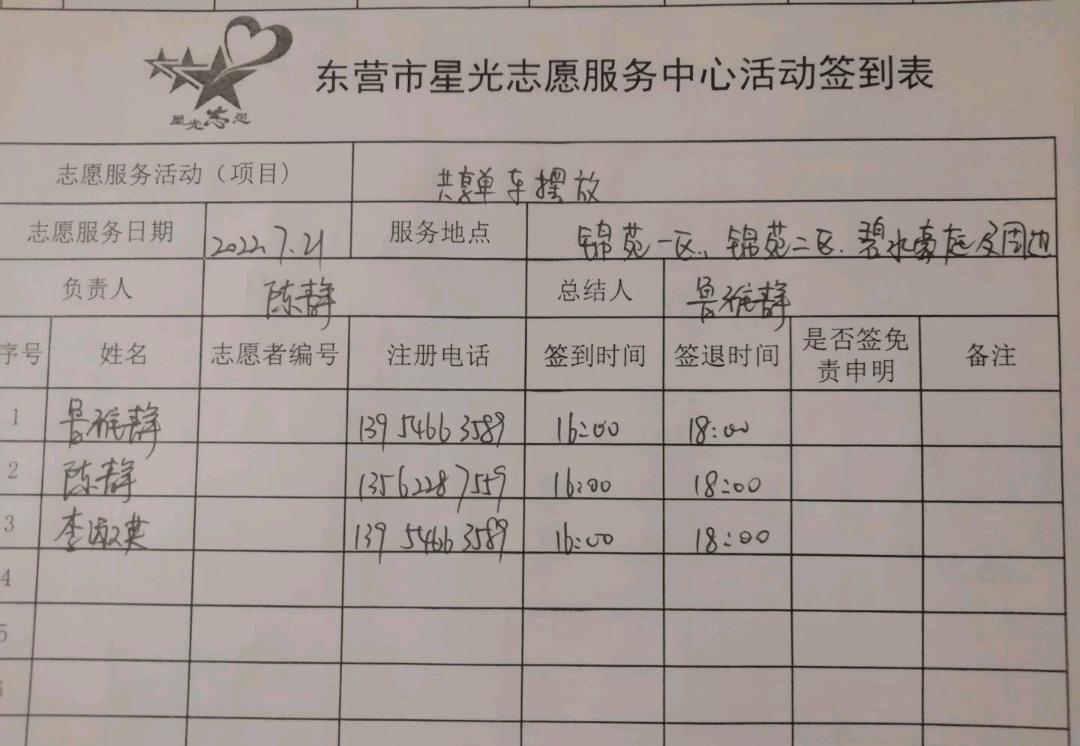 星光志愿
东营市星光志愿服务中心活动签到表
志愿服务活动（项目） 共享单车摆放
志愿服务日期 2022.7.21 服务地点 锦苑一区、锦苑二区.碧水豪庭及周边
负责人 陈静 总结人 静
序号 姓名 志愿者编号 注册电话 签到时间 签退时间 是否签免责申明 备注
1 静 139 5466 3589 16:00 18:00
2 陈静 13562287559 16:00 18:00
3 李淑英 139 5466 3589 16:00 18:00
4
5